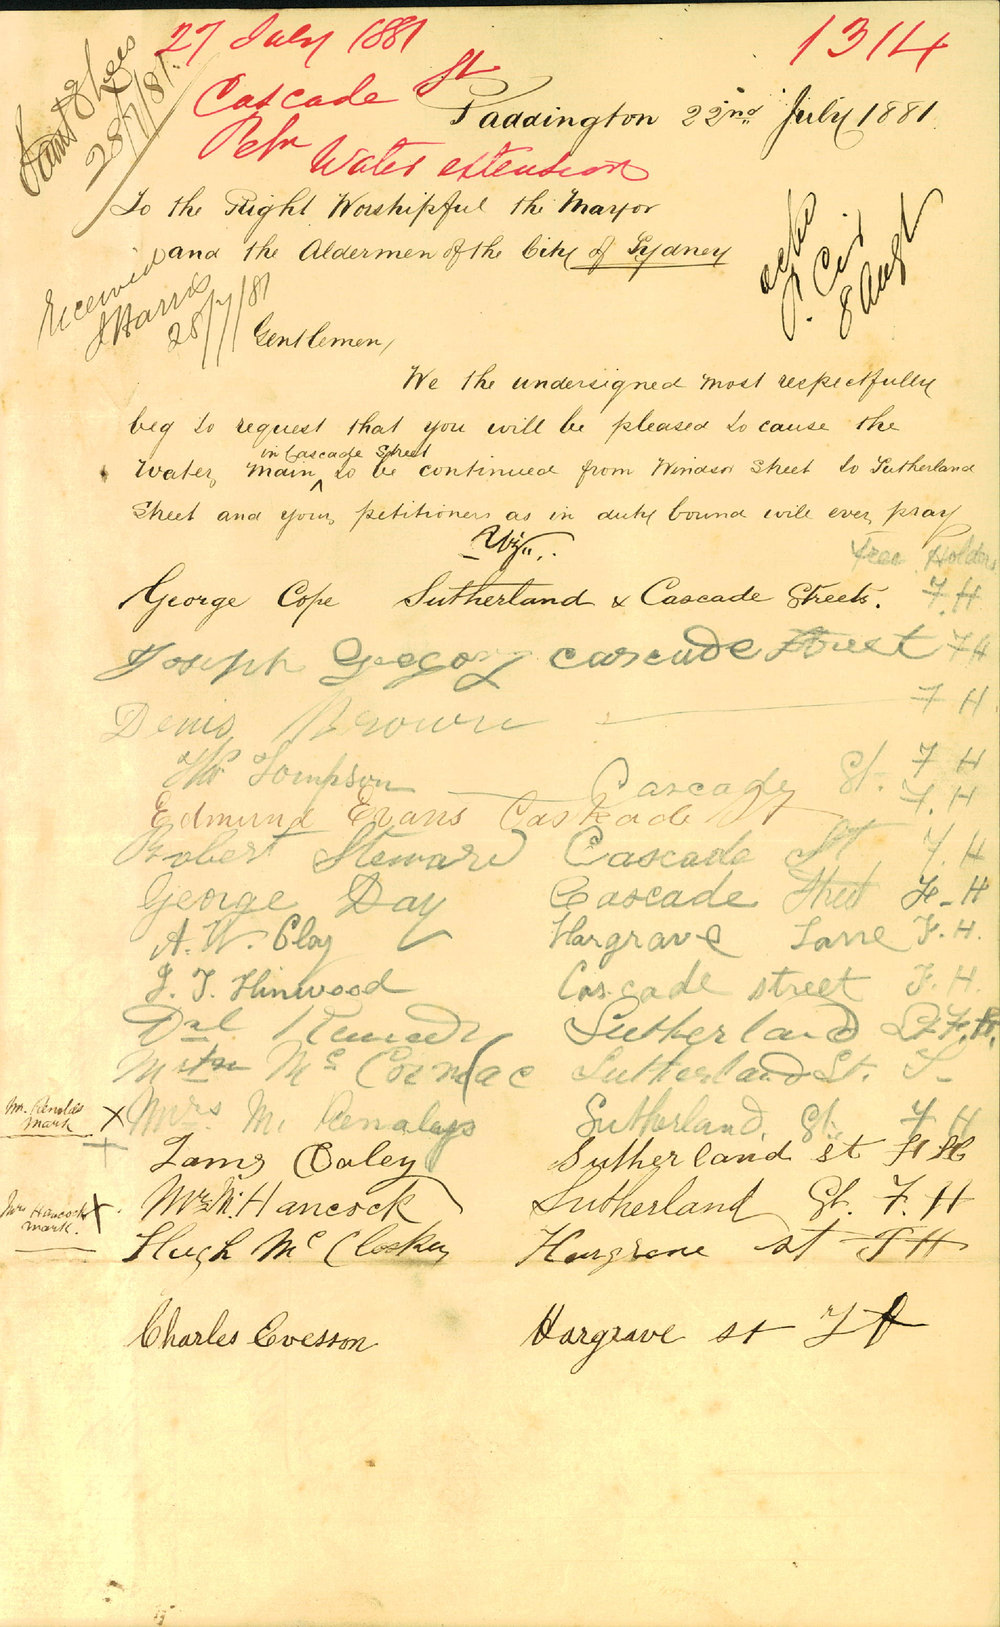 27 July 1881
1314
Cascade St
Petn
Water extension
28/7/81
Paddington 22nd July 1881.
To the Right Worshipful the Mayor
and the Aldermen of the City of Sydney
received
J Harris
28/7/81
8 Augt
Gentlemen,
We the undersigned most respectfully
beg to request that you will be pleased to cause the
in Cascade Street
Water main ^ to be continued from Windsor Street to Sutherland
Street and your petitioners as in duty bound will ever pray
Free Holders
George Cope Sutherland & Cascade Streets. F. H
Joseph Gregory cascade Street F H
Denis Brown F H
Tompson Cascade St. F H
Edmund Evans Caskade St F. H
Robert Steward Cascade St F. H
George Day Cascade Street F. H
A. W. Clay Hargrave Lane F. H.
J. T. Hinwood Cascade street F. H.
Sutherland St F. H.
Mc Cormac Sutherland St.
mark X Mrs. M. Sutherland St. F H
James Oaley Sutherland st F H
Mrs Hancocks mark. X Mrs M. Hancock Sutherland St. F. H
Hugh Mc Closkey Hargrave st F H
Charles Evesson Hargrave st F H